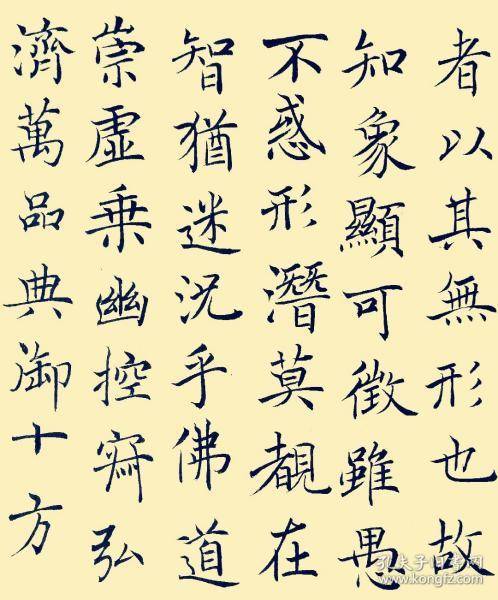 者以其無形也故
知象顯可徵雖愚
不惑形潛莫覩在
智猶迷況乎佛道
崇虛乗幽控寂弘
濟萬品典御十方
孔夫子旧书网
www.kongfz.com